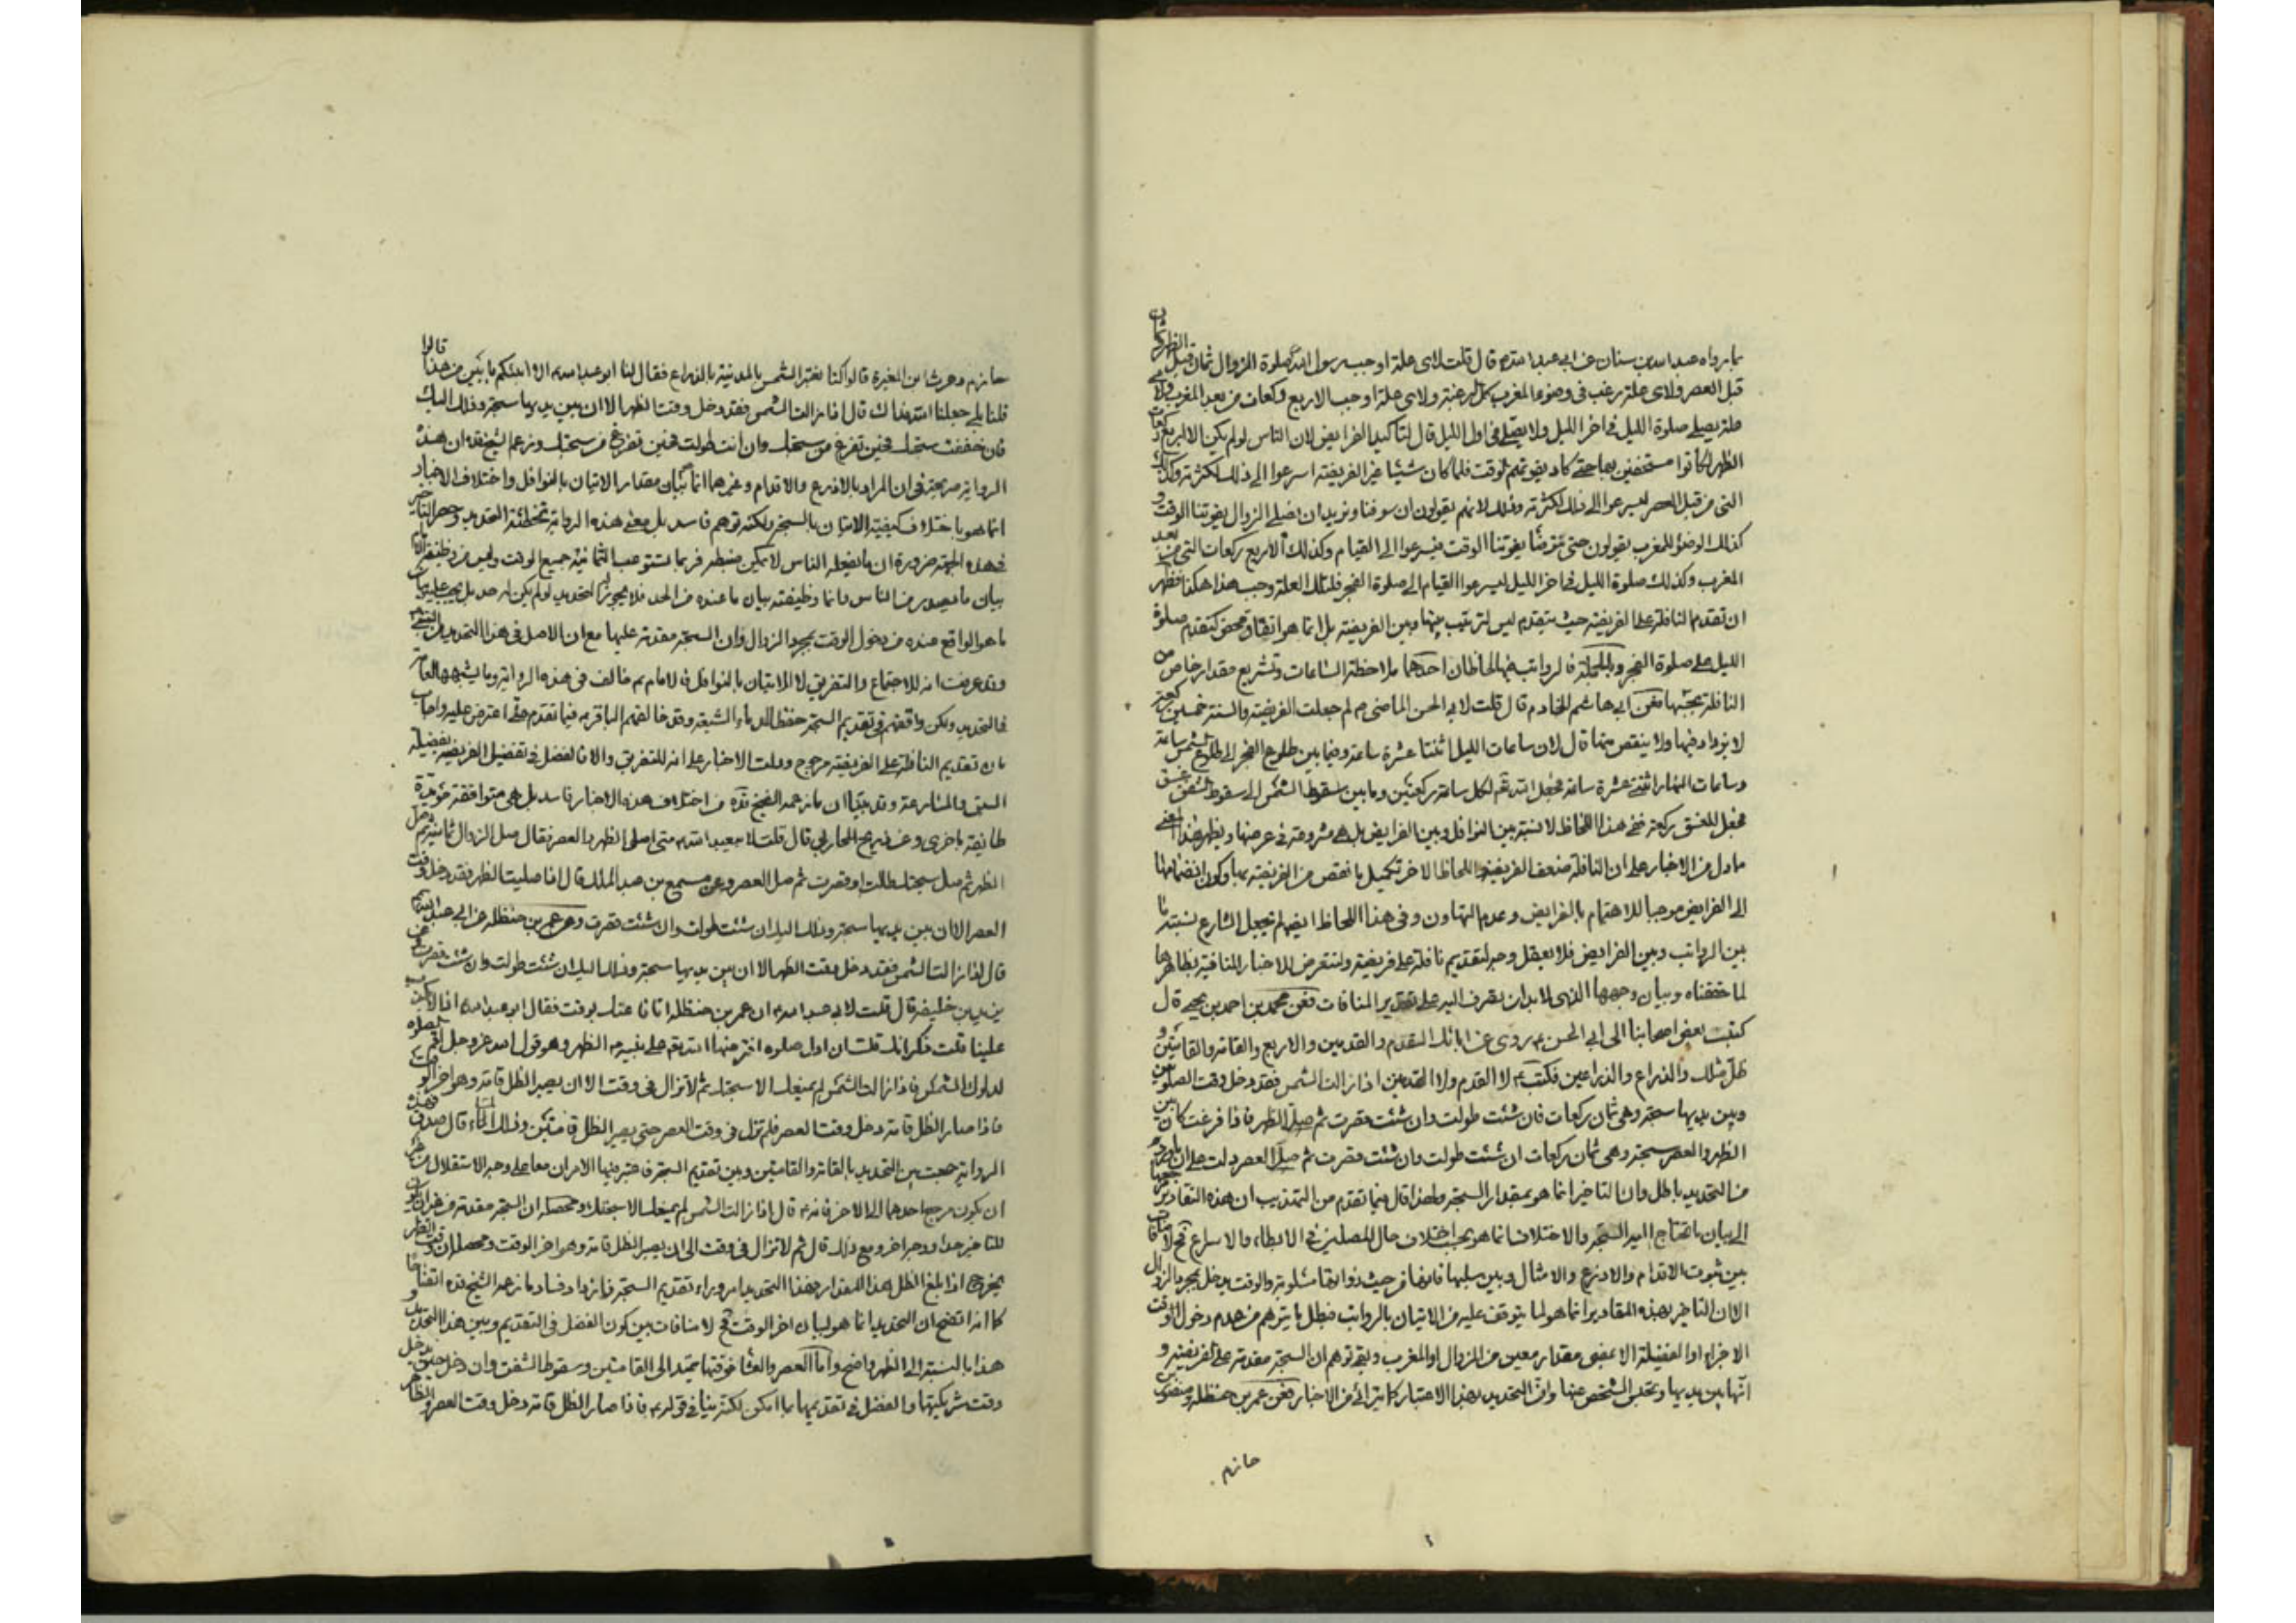 بما رواه عبد الله بن سنان عن ابي عبد الله ع قال قلت لاي علة اوجب رسول الله ص صلوة الزوال ثمان قبل الظهر وثمان
قبل العصر ولاي علة رغب في وضوء المغرب كل الرغبة ولاي علة اوجب الاربع ركعات من بعد المغرب ولاي
علة يصلي صلوة الليل في اخر الليل ولا يصلي في اول الليل قال لتاكيد الفرايض لان الناس لو لم يكن الا اربع ركعات
الظهر لكانوا مستخفين بها حتى كاد يفوتهم الوقت فلما كان شيئا غير الفريضة اسرعوا الى ذلك لكثرته وكذلك
التي من قبل العصر ليسرعوا الى ذلك لكثرته وذلك لانهم يقولون ان سوفنا ونريد ان نصلي الزوال يفوتنا الوقت و
كذلك الوضوء للمغرب يقولون حتى نتوضأ يفوتنا الوقت فيسرعوا الى القيام وكذلك الاربع ركعات التي من بعد
المغرب وكذلك صلوة الليل في اخر الليل ليسرعوا القيام الى صلوة الفجر فلتلك العلة وجب هذا هكذا فظهر
ان تقدم النافلة على الفريضة حيث يتقدم ليس لترتيب بينها وبين الفريضة بل انما هو اتفاق محض كتقدم صلوة
الليل على صلوة الفجر وبالجملة فالرواتب فيها لحاظان احدهما ملاحظة الساعات وتشريع مقدار خاص من
النافلة بحسبها فعن ابي هاشم الخادم قال قلت لابي الحسن الماضي ع لم جعلت الفريضة والسنة خمسين ركعة
لا يزاد فيها ولا ينقص منها قال لان ساعات الليل اثنتا عشرة ساعة وفيما بين طلوع الفجر الى طلوع الشمس ساعة
وساعات النهار اثنتى عشرة ساعة فجعل الله تع لكل ساعة ركعتين وما بين سقوط الشمس الى سقوط الشفق غسق
فجعل للغسق ركعة ففي هذا اللحاظ لا نسبة بين النوافل وبين الفرايض بل هي مشروعة في عرضها ويظهر هذا المعنى
مما دل من الاخبار على ان النافلة ضعف الفريضة واللحاظ الاخر تكميل ما نقص من الفريضة بها وكون انضمامها
الى الفرايض موجبا للاهتمام بالفرايض وعدم التهاون وفي هذا اللحاظ ايضا لم يجعل الشارع نسبة ما
بين الرواتب وبين الفرايض فلا يعقل وجه لتقديم نافلة على فريضة ولنتعرض للاخبار المنافية بظاهرها
لما حققناه وبيان وجهها الذي لابد ان يصرف اليه على تقدير المنافات فعن محمد بن احمد بن يحيى قال
كتب بعض اصحابنا الى ابي الحسن ع روي عن ابائك القدم والقدمين والاربع والقامة والقامتين و
ظل مثلك والذراع والذراعين فكتب ع لا القدم ولا القدمين اذا زالت الشمس فقد دخل وقت الصلوتين
وبين يديها سبحة وهي ثمان ركعات فان شئت طولت وان شئت قصرت ثم صل الظهر فاذا فرغت كان بين
الظهر والعصر سبحة وهي ثمان ركعات ان شئت طولت وان شئت قصرت ثم صل العصر دلت على ان
من التحديد باطل وان التاخير انما هو بمقدار السبحة ولهذا قال فيما تقدم من التهذيب ان هذه التقادير
الى بيان ما تحتاج اليه السبحة والاختلاف انما هو بحسب اختلاف حال المصلين في الابطاء والاسراع فح لا منافات
بين ثبوت الاقدام والاذرع والامثال وبين سلبها فانها من حيث ذواتها مسلوبة والوقت يدخل بمجرد الزوال
الا ان التاخير بهذه المقادير انما هو لما يتوقف عليه من الاتيان بالرواتب فبطل ما يتوهم من عدم دخول الوقت
الاجزاء او الفضيلة الا بمضي مقدار معين من الزوال او المغرب وبقي توهم ان السبحة مقدمة على الفريضة و
انها بين يديها ويختلف الشخص عنها وان التحديد بهذا الاعتبار كما يترائى من الاخبار فعن عمر بن حنظلة ومنصور بن
حازم
حازم وحرث ابن المغيرة قالوا كنا نعتبر الشمس بالمدينة بالذراع فقال لنا ابو عبد الله ع الا انبئكم بابين من هذا قالوا
قلنا بلى جعلنا الله فداك قال اذا زالت الشمس فقد دخل وقت الظهر الا ان بين يديها سبحة وذلك اليك
فان خففت سبحتك فحين تفرغ من سبحتك وان انت طولت فحين تفرغ من سبحتك وزعم الشيخ قده ان هذه
الرواية صريحة في ان المراد بالاذرع والاقدام وغيرهما انما بيان مقدار الاتيان بالنوافل واختلاف الاخبار
انما هو باختلاف كيفية الاتيان بالسبحة ولكنه توهم فاسد بل معنى هذه الرواية تخطئة التحديد وحصر التاخير
فهذه الجهة ضرورة ان ما يفعله الناس لا يمكن ضبطه فربما يستوعب الثمانية جميع الوقت وليس من وظيفة الامام
بيان ما يصدر من الناس وانما وظيفته بيان ما عنده من الحد فلا يجوز التحديد لو لم يكن له حد بل يجب عليه بيان
ما هو الواقع عنده من دخول الوقت بمجرد الزوال وان السبحة مقدمة عليها مع ان الاصل في هذا التحديد
وقد عرفت انه للاجتماع والتفريق لا الاتيان بالنوافل فالامام ع خالف في هذه الرواية وما يشبهها العامة
في التحديد ولكن وافقهم في تقديم السبحة حفظا لدماء الشيعة وقد خالفهم الباقر ع فيما تقدم حتى اعترض عليه واجاب
بان تقديم النافلة على الفريضة مرجوح ودلت الاخبار على انه للتفريق والا فالفضل في تفضيل الفريضة بفضيلة
السبق والمسارعة وقد بينا ان ما زعمه الشيخ قده من اختلاف هذه الاخبار فاسد بل هي متوافقة مؤيدة
طائفة باخرى وعن ذريح المحاربي قال قلت لابي عبد الله ع متى اصلي الظهر والعصر فقال صل الزوال ثمانية ثم صل
الظهر ثم صل سبحتك طالت او قصرت ثم صل العصر وعن مسمع بن عبد الملك قال اذا صليت الظهر فقد دخل وقت
العصر الا ان بين يديها سبحة وذلك اليك ان شئت طولت وان شئت قصرت وعن عمر بن حنظلة عن ابي عبد الله ع
قال اذا زالت الشمس فقد دخل وقت الظهر الا ان بين يديها سبحة وذلك اليك ان شئت طولت وان شئت قصرت وعن
يزيد بن خليفة قال قلت لابي عبد الله ع ان عمر بن حنظلة اتانا عنك بوقت فقال ابو عبد الله ع اذا لا يكذب
علينا قلت ذكر انك قلت ان اول صلوة افترضها الله تع على نبيه ص الظهر وهو قول الله عز وجل اقم الصلوة
لدلوك الشمس فاذا زالت الشمس لم يمنعك الا سبحتك ثم لا تزال في وقت الا ان يصير الظل قامة وهو اخر الوقت
فاذا صار الظل قامة دخل وقت العصر فلم تزل في وقت العصر حتى يصير الظل قامتين وذلك المساء قال صدق فهذه
الرواية جمعت بين التحديد بالقامة والقامتين وبين تقديم السبحة
ان يكون مرجع احدهما الى الاخر فانه ع قال اذا زالت الشمس لم يمنعك الا سبحتك ومحصله ان السبحة مقدمة
للتاخير حدا ووجه اخر ومع ذلك قال ثم لا تزال في وقت الى ان يصير الظل قامة وهو اخر الوقت ومحصله ان وقت الظهر
يخرج اذا بلغ الظل هذا المقدار فهذا التحديد امر وراء تقديم السبحة فازداد فساد ما زعمه الشيخ قده اتضاحا
كما انه اتضح ان التحديد انما هو لبيان اخر الوقت فح لا منافات بين كون الفضل في التقديم وبين هذا التحديد و
هذا بالنسبة الى الظهر واضح واما العصر والعشا فوقتهما يمتد الى القامتين وسقوط الشفق وان دخل
وقت شريكتها والفضل في تقديمها ما امكن لكنه ينافي قوله ع فاذا صار الظل قامة دخل وقت العصر